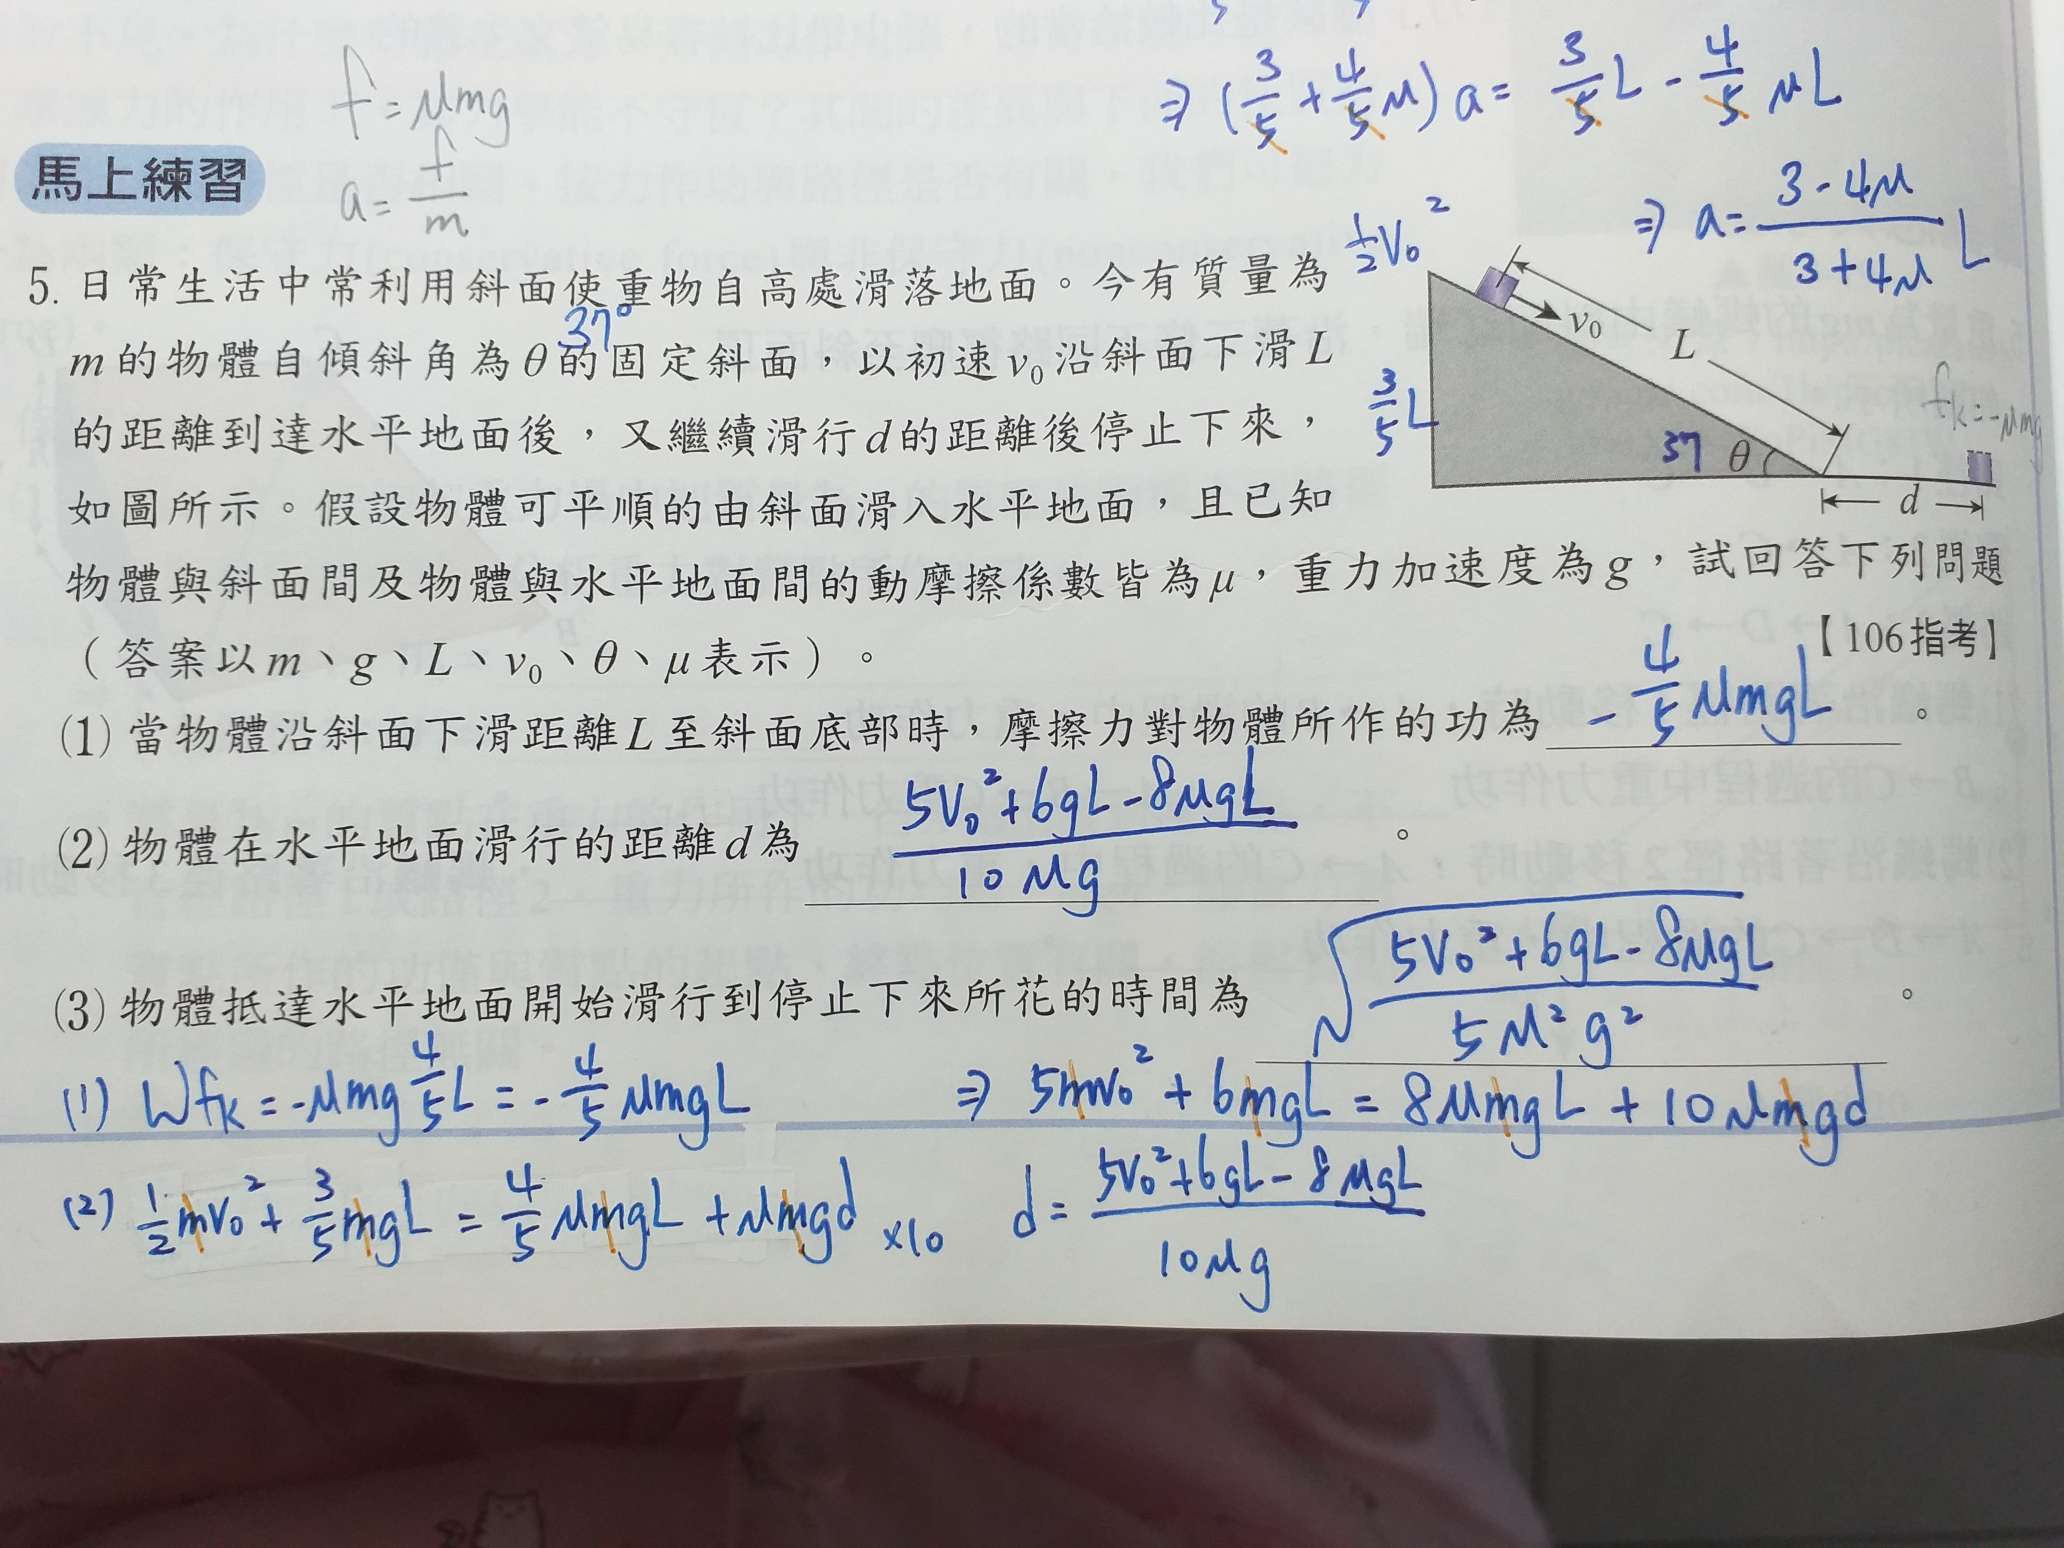 ⇒ (3/5 + 4/5 μ) a = 3/5 L - 4/5 μL
f = μmg
馬上練習
a = f/m
⇒ a = (3-4μ)/(3+4μ) L
1/2 V₀²
5. 日常生活中常利用斜面使重物自高處滑落地面。今有質量為
37°
m的物體自傾斜角為θ的固定斜面，以初速v₀沿斜面下滑L
的距離到達水平地面後，又繼續滑行d的距離後停止下來，
如圖所示。假設物體可平順的由斜面滑入水平地面，且已知
物體與斜面間及物體與水平地面間的動摩擦係數皆為μ，重力加速度為g，試回答下列問題
（答案以m、g、L、v₀、θ、μ表示）。
【106指考】
v₀
L
3/5 L
fk = -μmg
37 θ
d
(1) 當物體沿斜面下滑距離L至斜面底部時，摩擦力對物體所作的功為 - 4/5 μmgL 。
(2) 物體在水平地面滑行的距離d為 (5V₀²+6gL-8μgL)/(10μg) 。
(3) 物體抵達水平地面開始滑行到停止下來所花的時間為 √((5V₀²+6gL-8μgL)/(5μ²g²)) 。
(1) Wfk = -μmg 4/5 L = - 4/5 μmgL
⇒ 5mv₀² + 6mgL = 8μmgL + 10μmgd
(2) 1/2 mv₀² + 3/5 mgL = 4/5 μmgL + μmgd ×10
d = (5V₀²+6gL-8μgL)/(10μg)